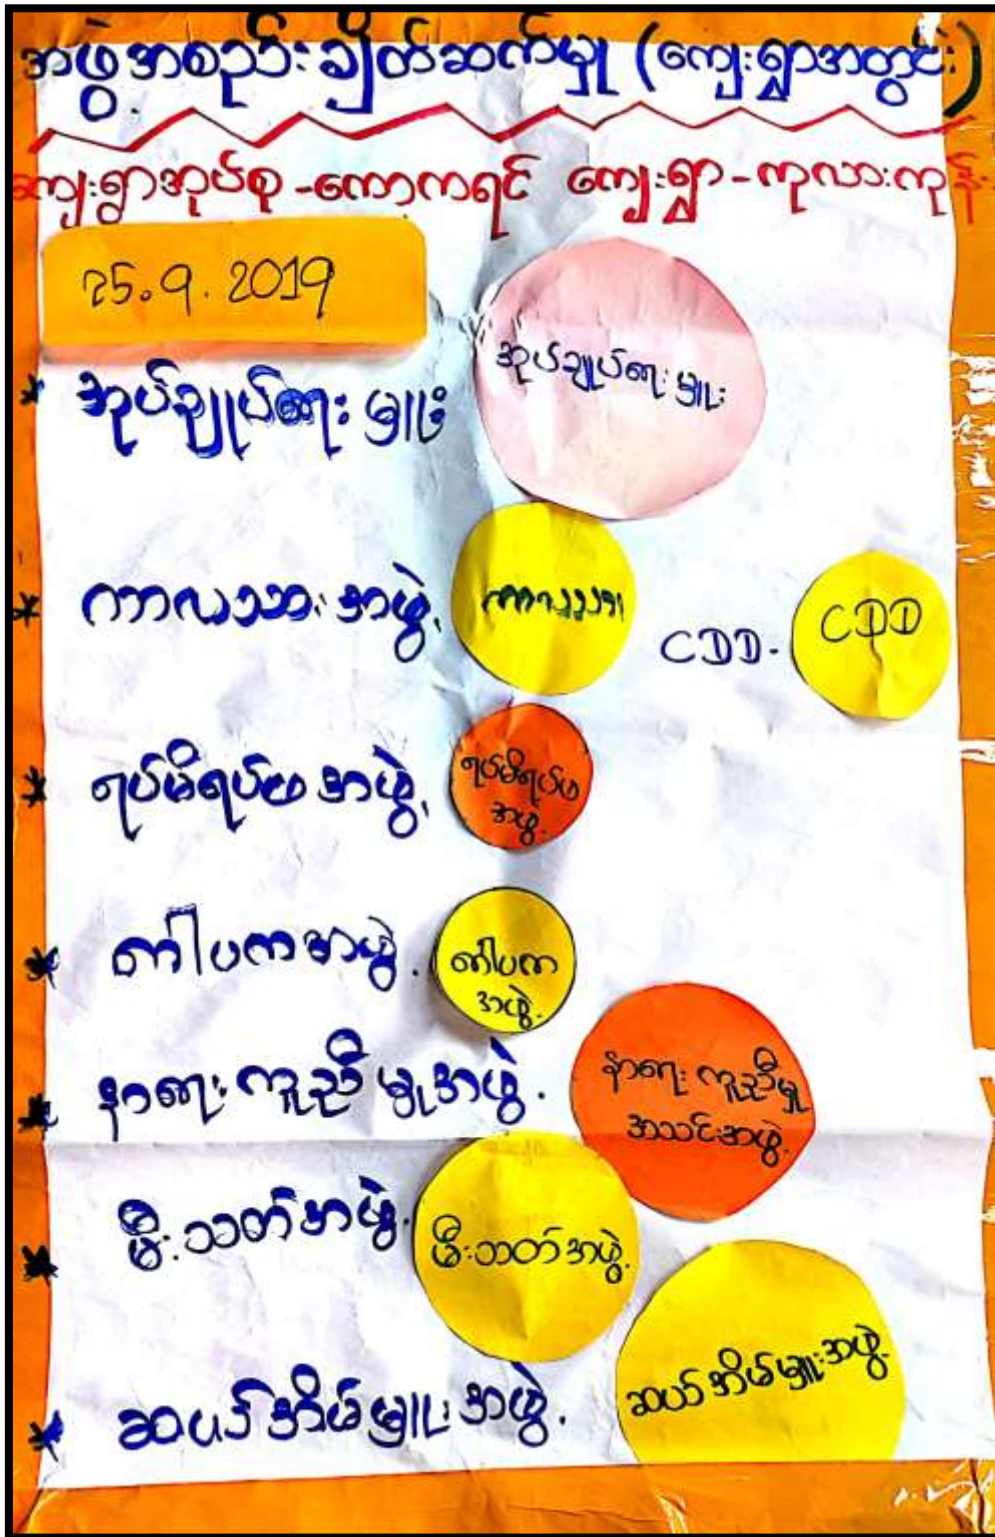 အဖွဲ့အစည်းချိတ်ဆက်မှု (ကျေးရွာအတွင်း)
ကျေးရွာအုပ်စု-ကော့ကရင် ကျေးရွာ-ကုလားကုန်း
25.9.2019
* အုပ်ချုပ်ရေးမှူး
အုပ်ချုပ်ရေးမှူး
* ကာလသားအဖွဲ့.
ကာလသား
CDD-
CDD
* ရပ်မိရပ်ဖအဖွဲ့.
ရပ်မိရပ်ဖ
အဖွဲ့.
* ဂေါပကအဖွဲ့.
ဂေါပက
အဖွဲ့.
* နာရေးကူညီမှုအဖွဲ့.
နာရေးကူညီမှု
အသင်းအဖွဲ့.
* မီးသတ်အဖွဲ့.
မီးသတ်အဖွဲ့.
* ဆယ်အိမ်မှူးအဖွဲ့.
ဆယ်အိမ်မှူးအဖွဲ့.